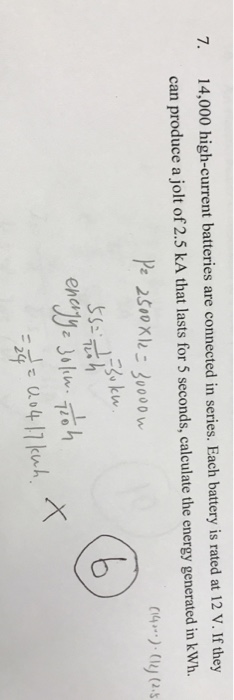 7. 14,000 high-current batteries are connected in series. Each battery is rated at 12 V. If they
can produce a jolt of 2.5 kA that lasts for 5 seconds, calculate the energy generated in kWh.
P= 2500×12 = 30000w
=30kw.
5s = 1/720 h
energy = 30kw. 1/720 h
= 1/24 = 0.0417kwh. X
6
(12) (2.5